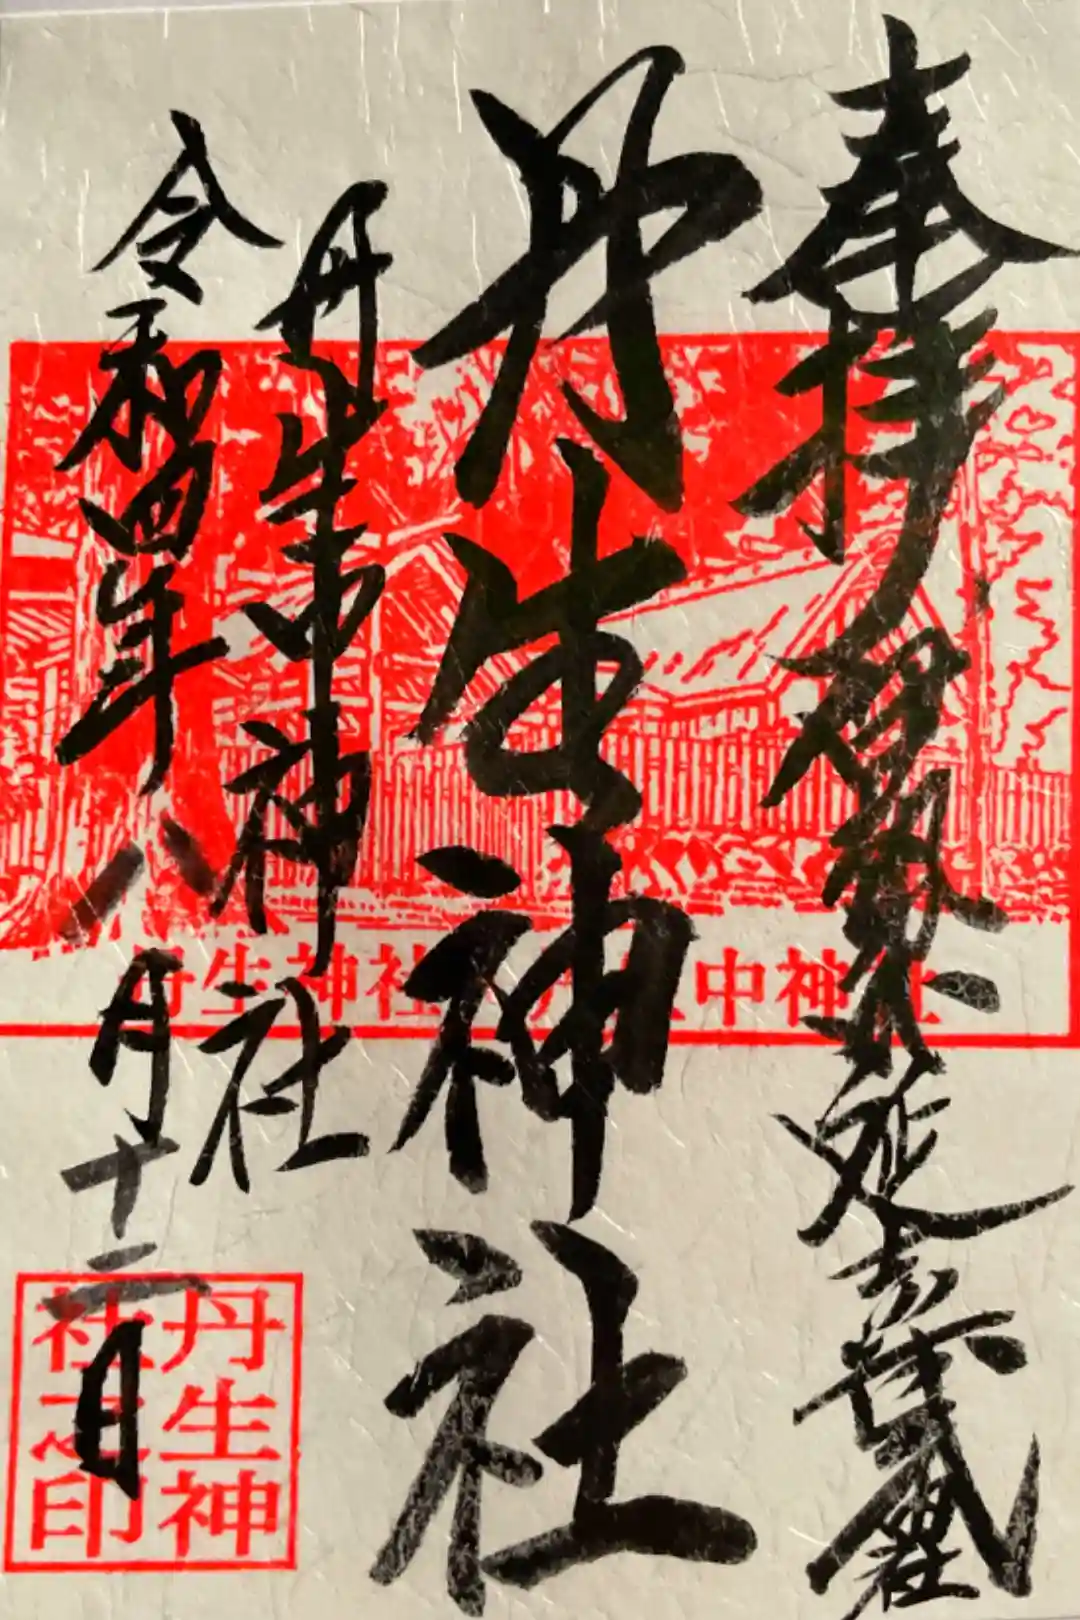 奉拝 伊勢國延喜式社
丹生神社
丹生中神社
令和四年八月十二日
丹生神社 丹生中神社
丹生神社之印